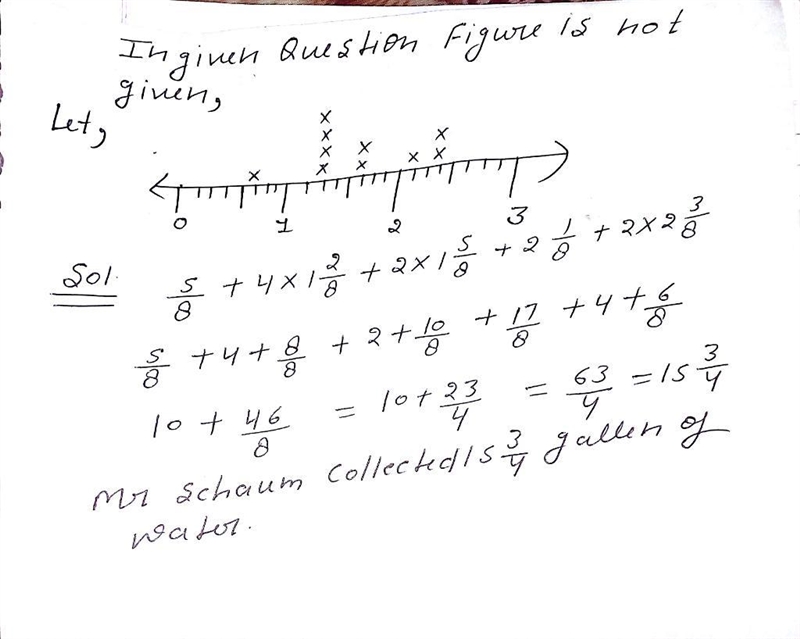 In given Question Figure is not
given,
Let,
x
x
x x x
x x x x x
0 1 2 3
Sol. 5/8 + 4×1 2/8 + 2×1 5/8 + 2 1/8 + 2×2 3/8
5/8 + 4 + 8/8 + 2 + 10/8 + 17/8 + 4 + 6/8
10 + 46/8 = 10 + 23/4 = 63/4 = 15 3/4
Mr Schaum Collected 15 3/4 gallen of
water.